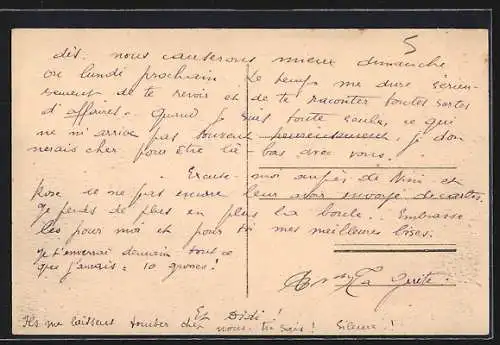 5
dis. nous causerons mieux dimanche
ou lundi prochain. Le temps me dure sérieu-
sement de te revoir et de te raconter toutes sortes
d'affaires. Quand je suis toute seule, ce qui
ne m'arrive pas souvent heureusement, je don
nerais cher pour être là-bas avec vous.
Excuse-moi auprès de Nini et
Rose de ne pas encore leur avoir envoyé de cartes.
Je perds de plus en plus la boule.. Embrasse
les pour moi et pour toi mes meilleures bises.
Je t'enverrai demain tout ce
que j'aurais: 10 grosses!
Ta Guite.
Et Didi!
Ils me laissent tomber chez nous. tu sais! Silence!